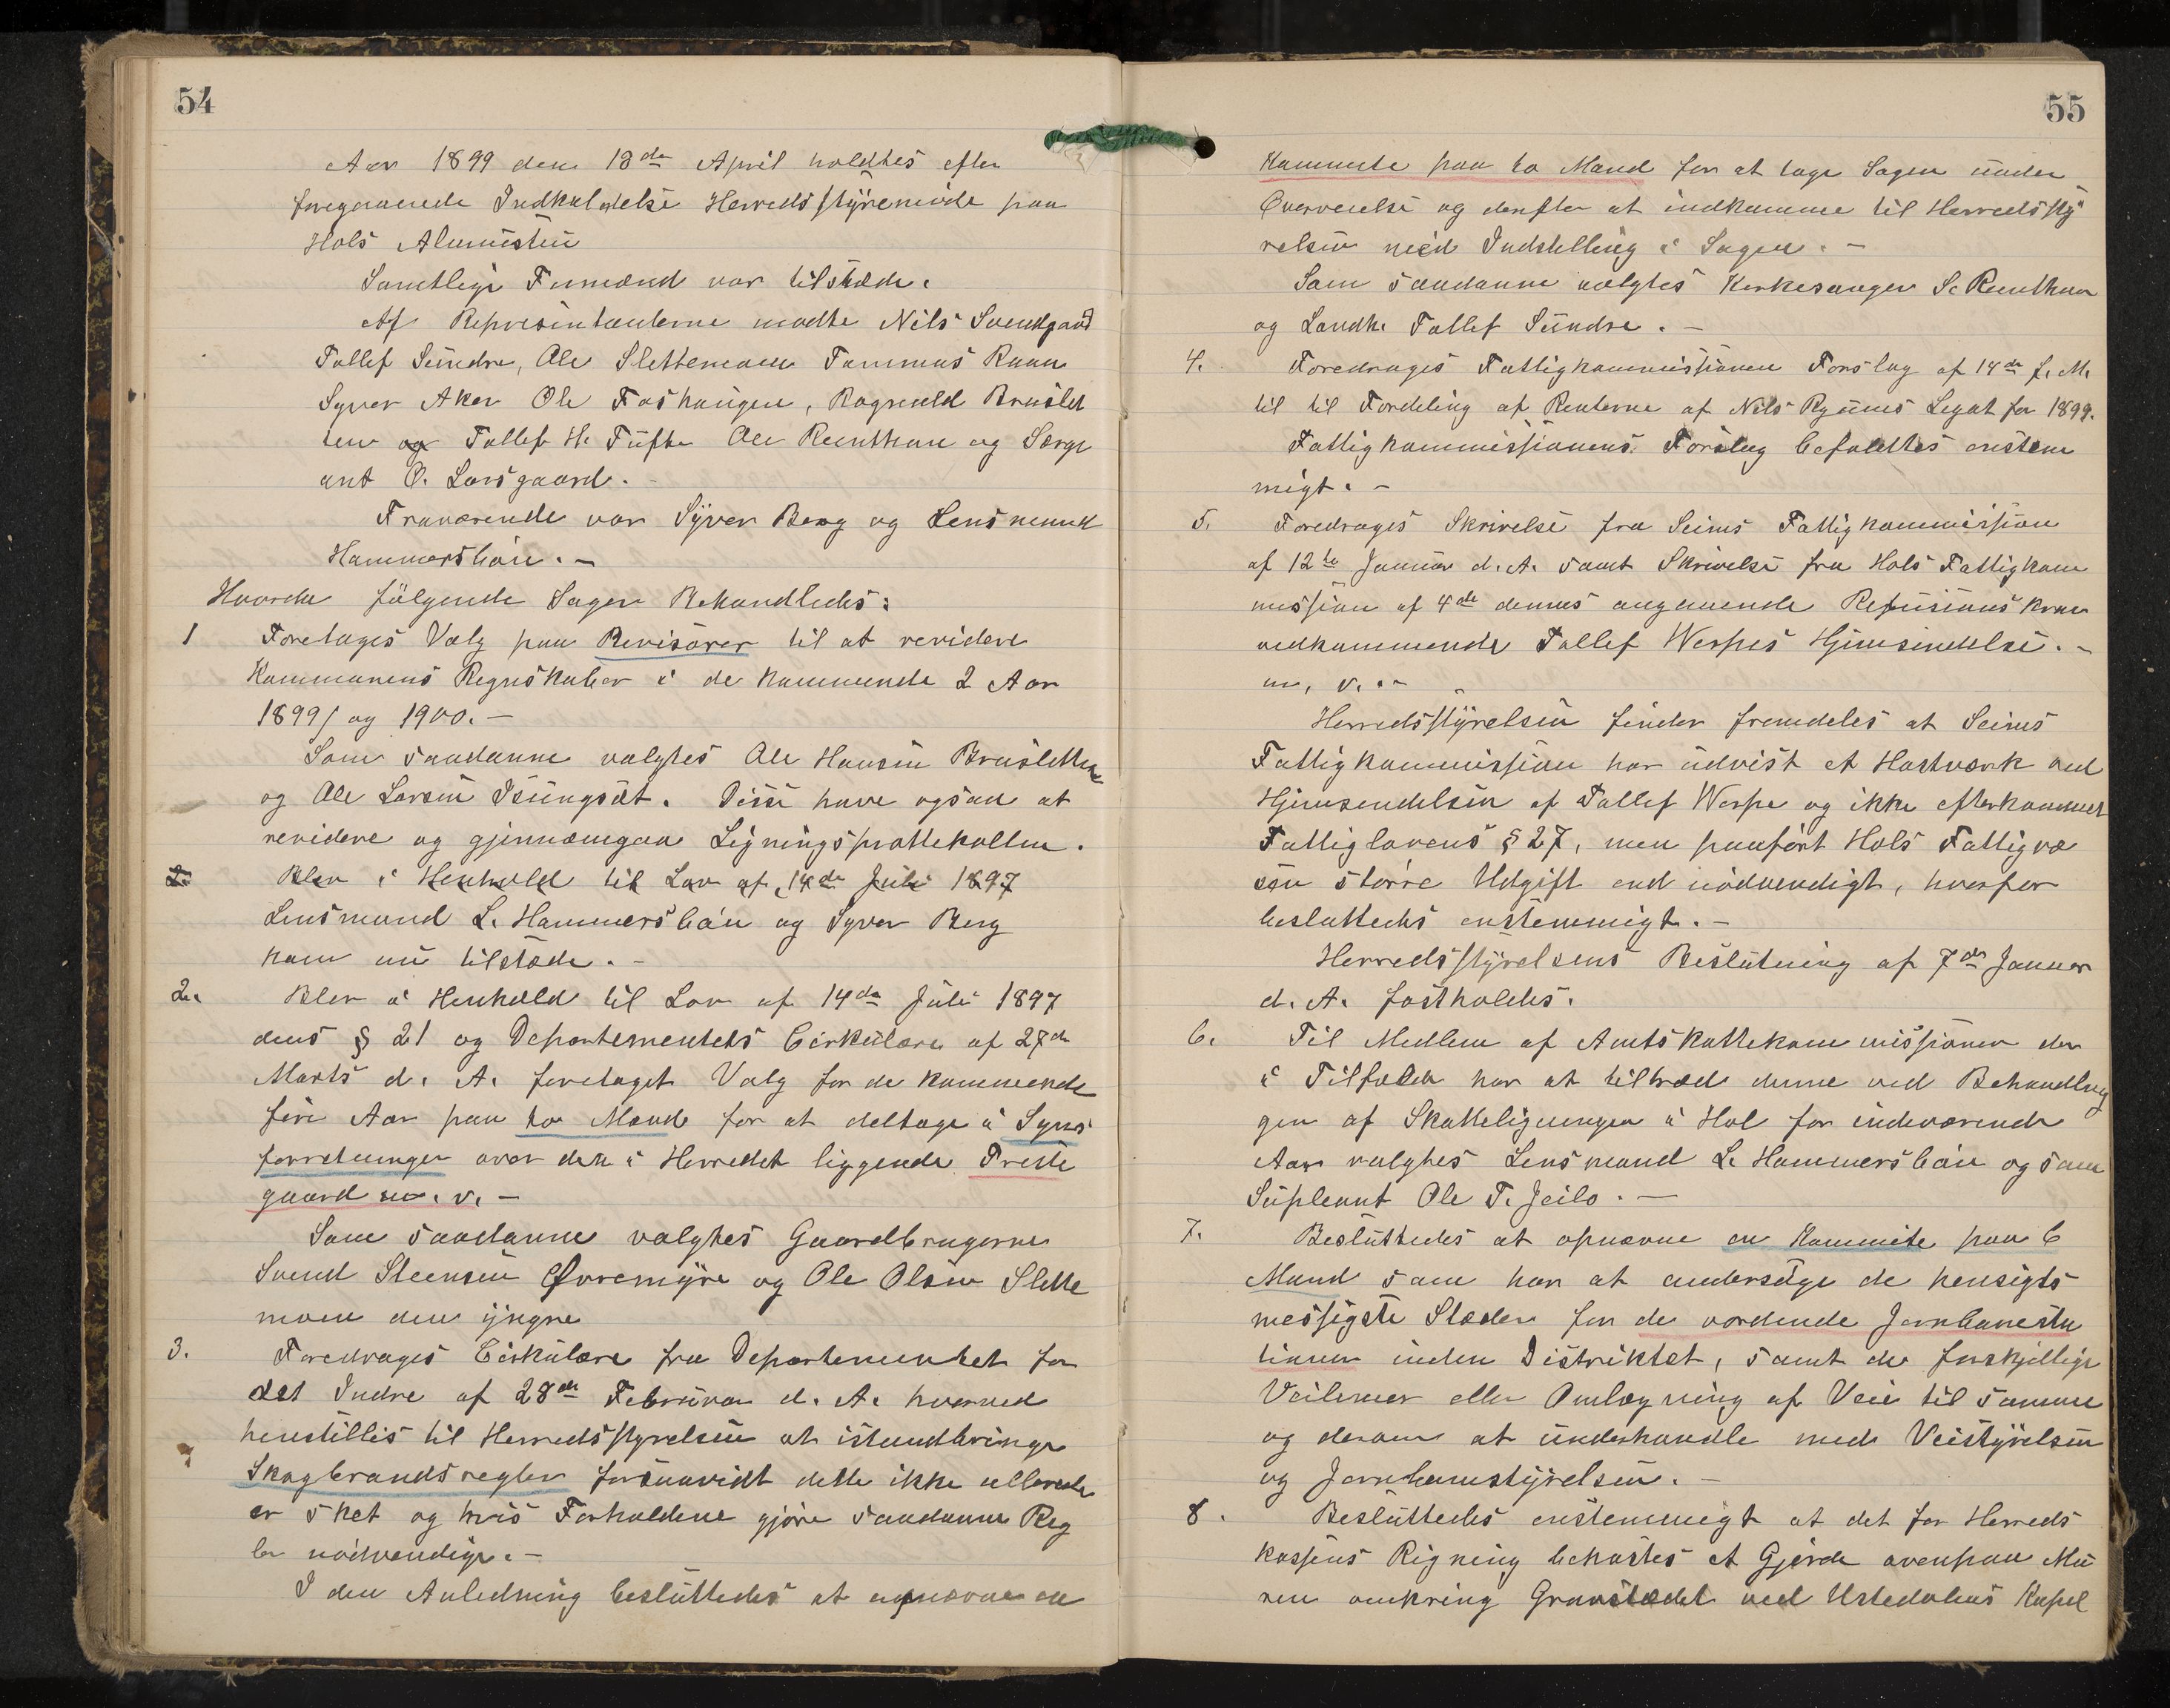 54
Aar 1899 den 13de April holdtes efter
foregaaende Indkaldelse Herredsstyremøde paa
Hols Almustue
Samtlige Formænd var tilstæde.
Af Repræsentanterne mødte Nils Svendgard
Tollef Sundre, Ole Slettemoen Tommas Raan
Syver Aker Ole Foshaugen, Ragnvald Bruslet
ten og Tollef H. Tufte Ole Reinthon og Serge
ant O. Larsgaard.
Fraværende var Syver Berg og Lensmand
Hammersbøen. –
Hvorda følgende Sager Behandledes:
1 Foretages Valg paa Revisorer til at revidere
Kommunens Regnskaber i de kommende 2 Aar
1899/ og 1900. –
Som saadanne valgtes Ole Hansen Brusletten
og Ole Larsen Isungsæt. Disse have ogsaa at
revidere og gjennemgaa Ligningsprottekollen.
2. Blev i Henhold til Lov af 14de Juli 1897
Lensmand L. Hammersbøen og Syver Berg
kom nu tilstæde. –
2. Blev i Henhold til Lov af 14de Juli 1897
dens § 21 og Departementets Cirkulære af 27de
Marts d. A. foretaget Valg for de kommende
fire Aar paa to Mænd for at deltage i Syns
forretninger over den i Herredet liggende Preste
gaard m. v. –
Som saadanne valgtes Gaardbrugerne
Svend Steensen Øvremyre og Ole Olsen Slette
moen den yngre
3. Foredrages Cirkulære fra Departementet for
det Indre af 28de Februar d. A. hvorved
henstilles til Herredsstyrelsen at istandbringe
Skogbrandsregler forsaavidt dette ikke allerede
er sket og hvis Forholdene gjøre saadanne Reg
ler nødvendige. –
I den Anledning besluttedes at opnævne en
55
Kommite paa to Mænd for at tage Sagen under
Overveielse og derefter at indkomme til Herredssty
relsen med Indstilling i Sagen. –
Som saadanne valgtes Kirkesanger S. Reinthon
og Landh. Tollef Sundre. –
4. Foredrages Fattigkommissionen Forslag af 14de f. M.
til til Fordeling af Renterne af Nils Rynes Legat for 1899.
Fattigkommissionens Forslag befuldtes enstem
migt. –
5. Foredrages Skrivelse fra Seims Fattigkommission
af 12te Januar d. A. samt Skrivelse fra Hols Fattigkom
mission af 4de dennes angaaende Refusions krav
vedkommende Tollef Werpes Hjemsendelse. –
m, v. –
Herredsstyrelsen finder fremdeles at Seims
Fattigkommission har udvist et Hastværk ved
Hjemsendelsen af Tollef Werpe og ikke efterkommet
Fattiglovens § 27, men paaført Hols Fattigvæ
sen større Udgift end nødvendigt, hvorfor
besluttedes enstemmigt. –
Herredsstyrelsens Beslutning af 7de Januar
d. A. fastholdes.
6. Til Medlem af Amtskattekommissionen der
i Tilfælde har at tiltræde denne ved Behandlin
gen af Skatteligningen i Hol for indeværende
Aar valgtes Lensmand L. Hammersbøen og som
Supleant Ole T. Jeilo. –
7. Besluttedes at opnævne en Kommite paa 6
Mand som har at undersøge de hensigts
messigste Stæder for de vordende Jernbanesta
tioner inden Distriktet, samt de forskjellige
Veilinier eller Omlægning af Veie til samme
og derom at underhandle med Veistyrelsen
og Jernbanestyrelsen. –
8. Besluttedes enstemmigt at det for Herreds
kassens Rigning bekostes et Gjerde ovenpaa Mu
ren omkring Gravstædet ved Ustedalens Kapel